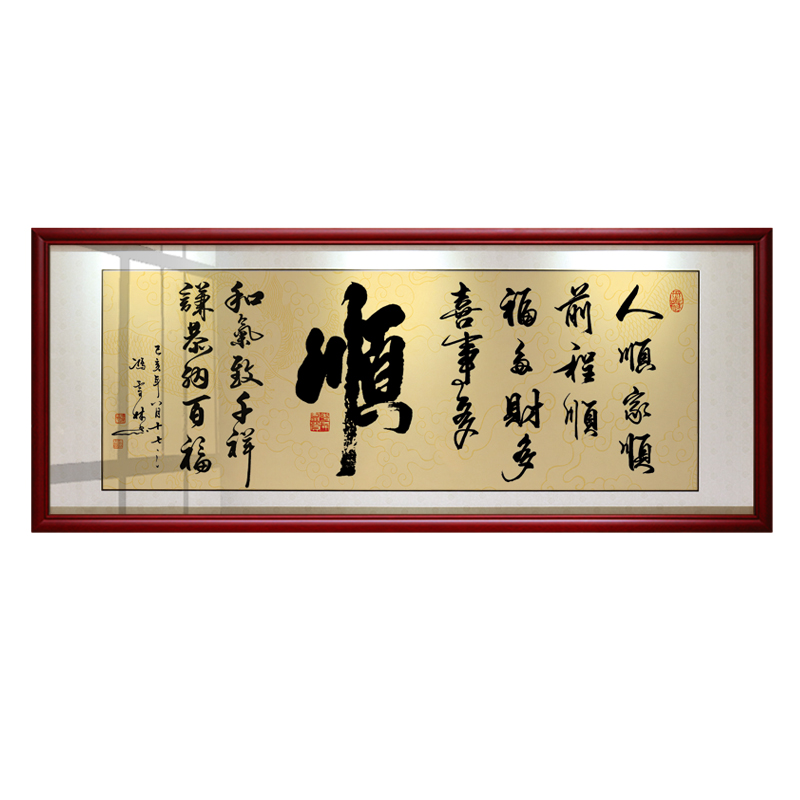 人順家順
前程順
福多財多
喜事多
順
和氣致千祥
謙恭納百福
己亥年八月十七